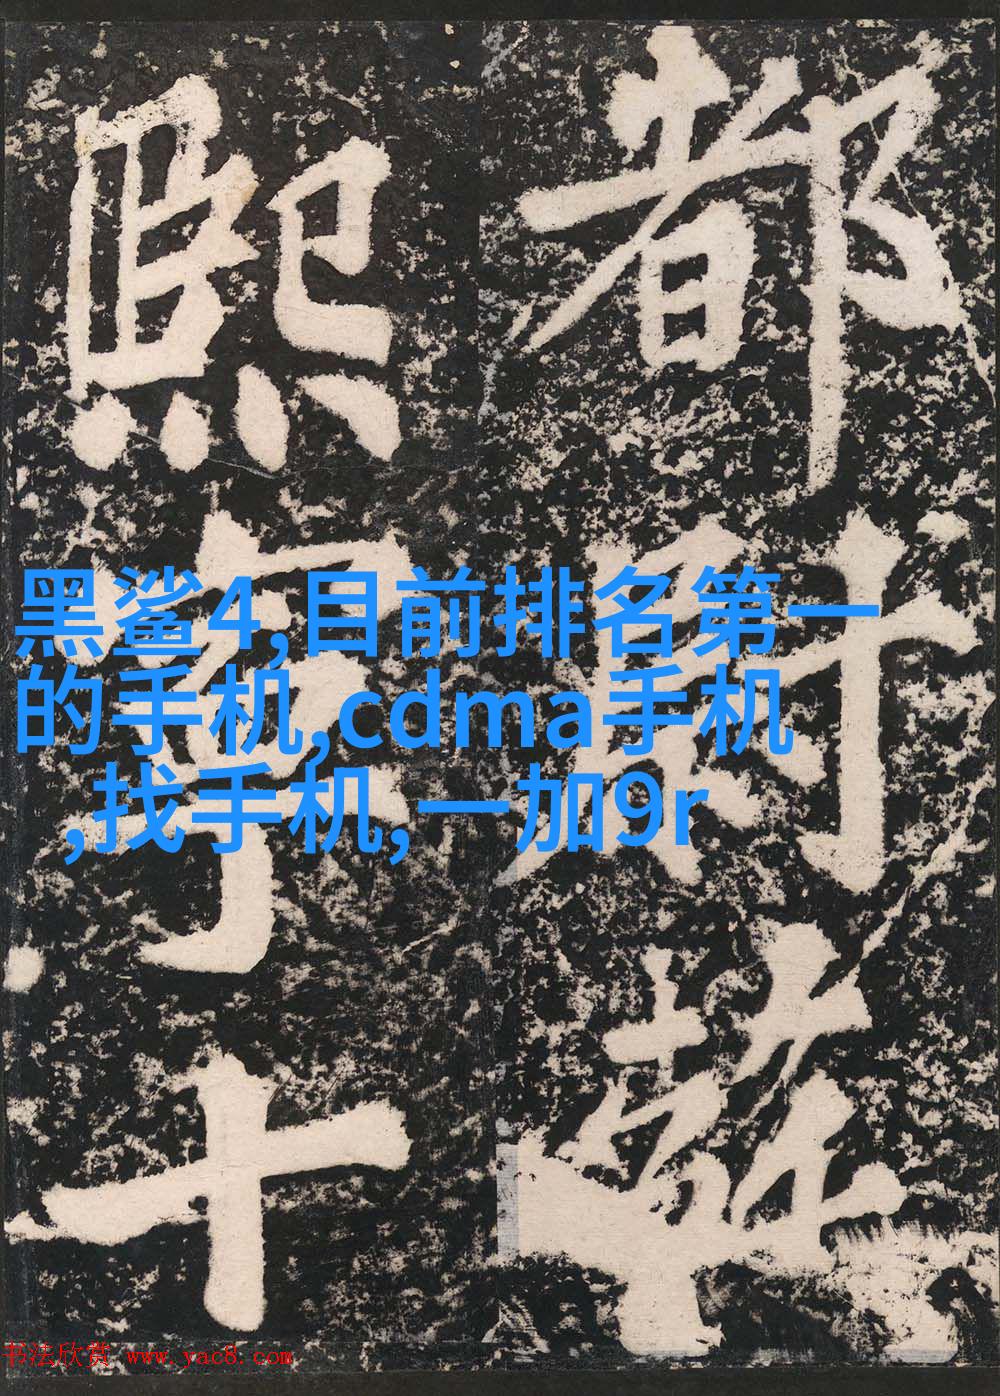 都尉
熙寧十
黑鲨4,目前排名第一
的手机,cdma手机
,找手机,一加9r
书法欣赏 www.yac8.com